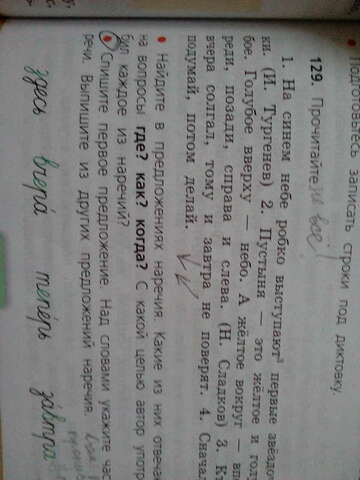 Подготовьтесь записать строки под диктовку.
129. Прочитайте
1. На синем небе робко выступают³ первые звёздоч-
ки. (И. Тургенев) 2. Пустыня — это жёлтое и голу-
бое. Голубое вверху — небо. А жёлтое вокруг — впе-
реди, позади, справа и слева. (Н. Сладков) 3. К
вчера солгал, тому и завтра не поверят. 4. Снача
подумай, потом делай.
Найдите в предложениях наречия. Какие из них отвеча
на вопросы где? как? когда? С какой целью автор употр
бил каждое из наречий?
Спишите первое предложение. Над словами укажите час
речи. Выпишите из других предложений наречия.
здесь вчера́ тепе́рь за́втра